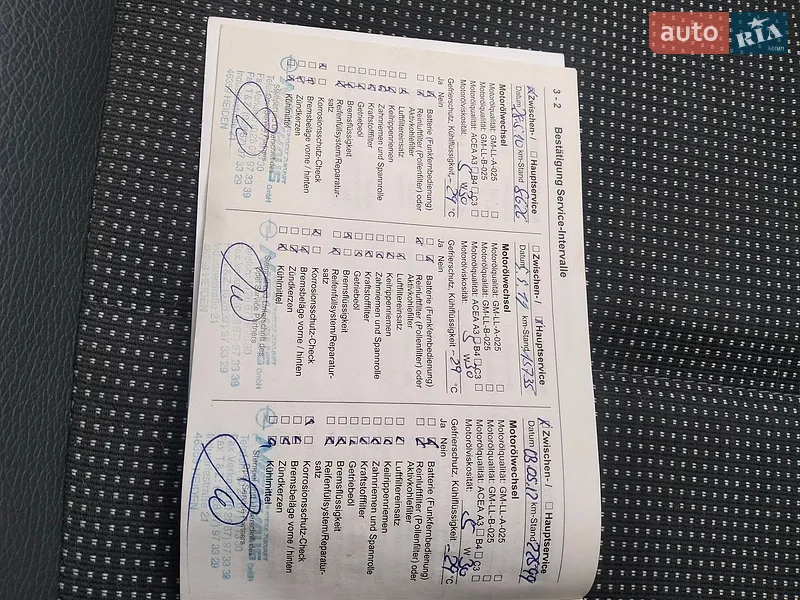 auto RIA .com
3 - 2 Bestätigung Service-Intervalle
Zwischen- / Hauptservice
Datum 28.5.10 km-Stand 8626
Motorölwechsel
Motorqualität: GM-LL-A-025
Motorqualität: GM-LL-B-025
Motorqualität: ACEA A3 B4 C3
Motorölviskosität: 5 W 30
Gefrierschutz, Kühlflüssigkeit -29 °C
Ja Nein
Batterie (Funkfernbedienung)
Reinluftfilter (Pollenfilter) oder
Aktivkohlefilter
Luftfiltereinsatz
Keilrippenriemen
Zahnriemen und Spannrolle
Kraftstofffilter
Getriebeöl
Bremsflüssigkeit
Reifenfüllsystem/Reparatur-
satz
Korrosionsschutz-Check
Bremsbeläge vorne / hinten
Zündkerzen
Kühlmittel
HEIDEN
97 33 39
33 29
Zwischen- / Hauptservice
Datum km-Stand 15735
Motorölwechsel
Motorqualität: GM-LL-A-025
Motorqualität: GM-LL-B-025
Motorqualität: ACEA A3 B4 C3
Motorölviskosität: 5 W 30
Gefrierschutz, Kühlflüssigkeit -29 °C
Ja Nein
Batterie (Funkfernbedienung)
Reinluftfilter (Pollenfilter) oder
Aktivkohlefilter
Luftfiltereinsatz
Keilrippenriemen
Zahnriemen und Spannrolle
Kraftstofffilter
Getriebeöl
Bremsflüssigkeit
Reifenfüllsystem/Reparatur-
satz
Korrosionsschutz-Check
Bremsbeläge vorne / hinten
Zündkerzen
Kühlmittel
Stempel und Unterschrift des
Service Partners
GmbH
97 33 39
97 33 29
Zwischen- / Hauptservice
Datum 03.05.12 km-Stand
Motorölwechsel
Motorqualität: GM-LL-A-025
Motorqualität: GM-LL-B-025
Motorqualität: ACEA A3 B4 C3
Motorölviskosität: 5 W 30
Gefrierschutz, Kühlflüssigkeit -29 °C
Ja Nein
Batterie (Funkfernbedienung)
Reinluftfilter (Pollenfilter) oder
Aktivkohlefilter
Luftfiltereinsatz
Keilrippenriemen
Zahnriemen und Spannrolle
Kraftstofffilter
Getriebeöl
Bremsflüssigkeit
Reifenfüllsystem/Reparatur-
satz
Korrosionsschutz-Check
Bremsbeläge vorne / hinten
Zündkerzen
Kühlmittel
GmbH
21
97 33 39
97 33 29